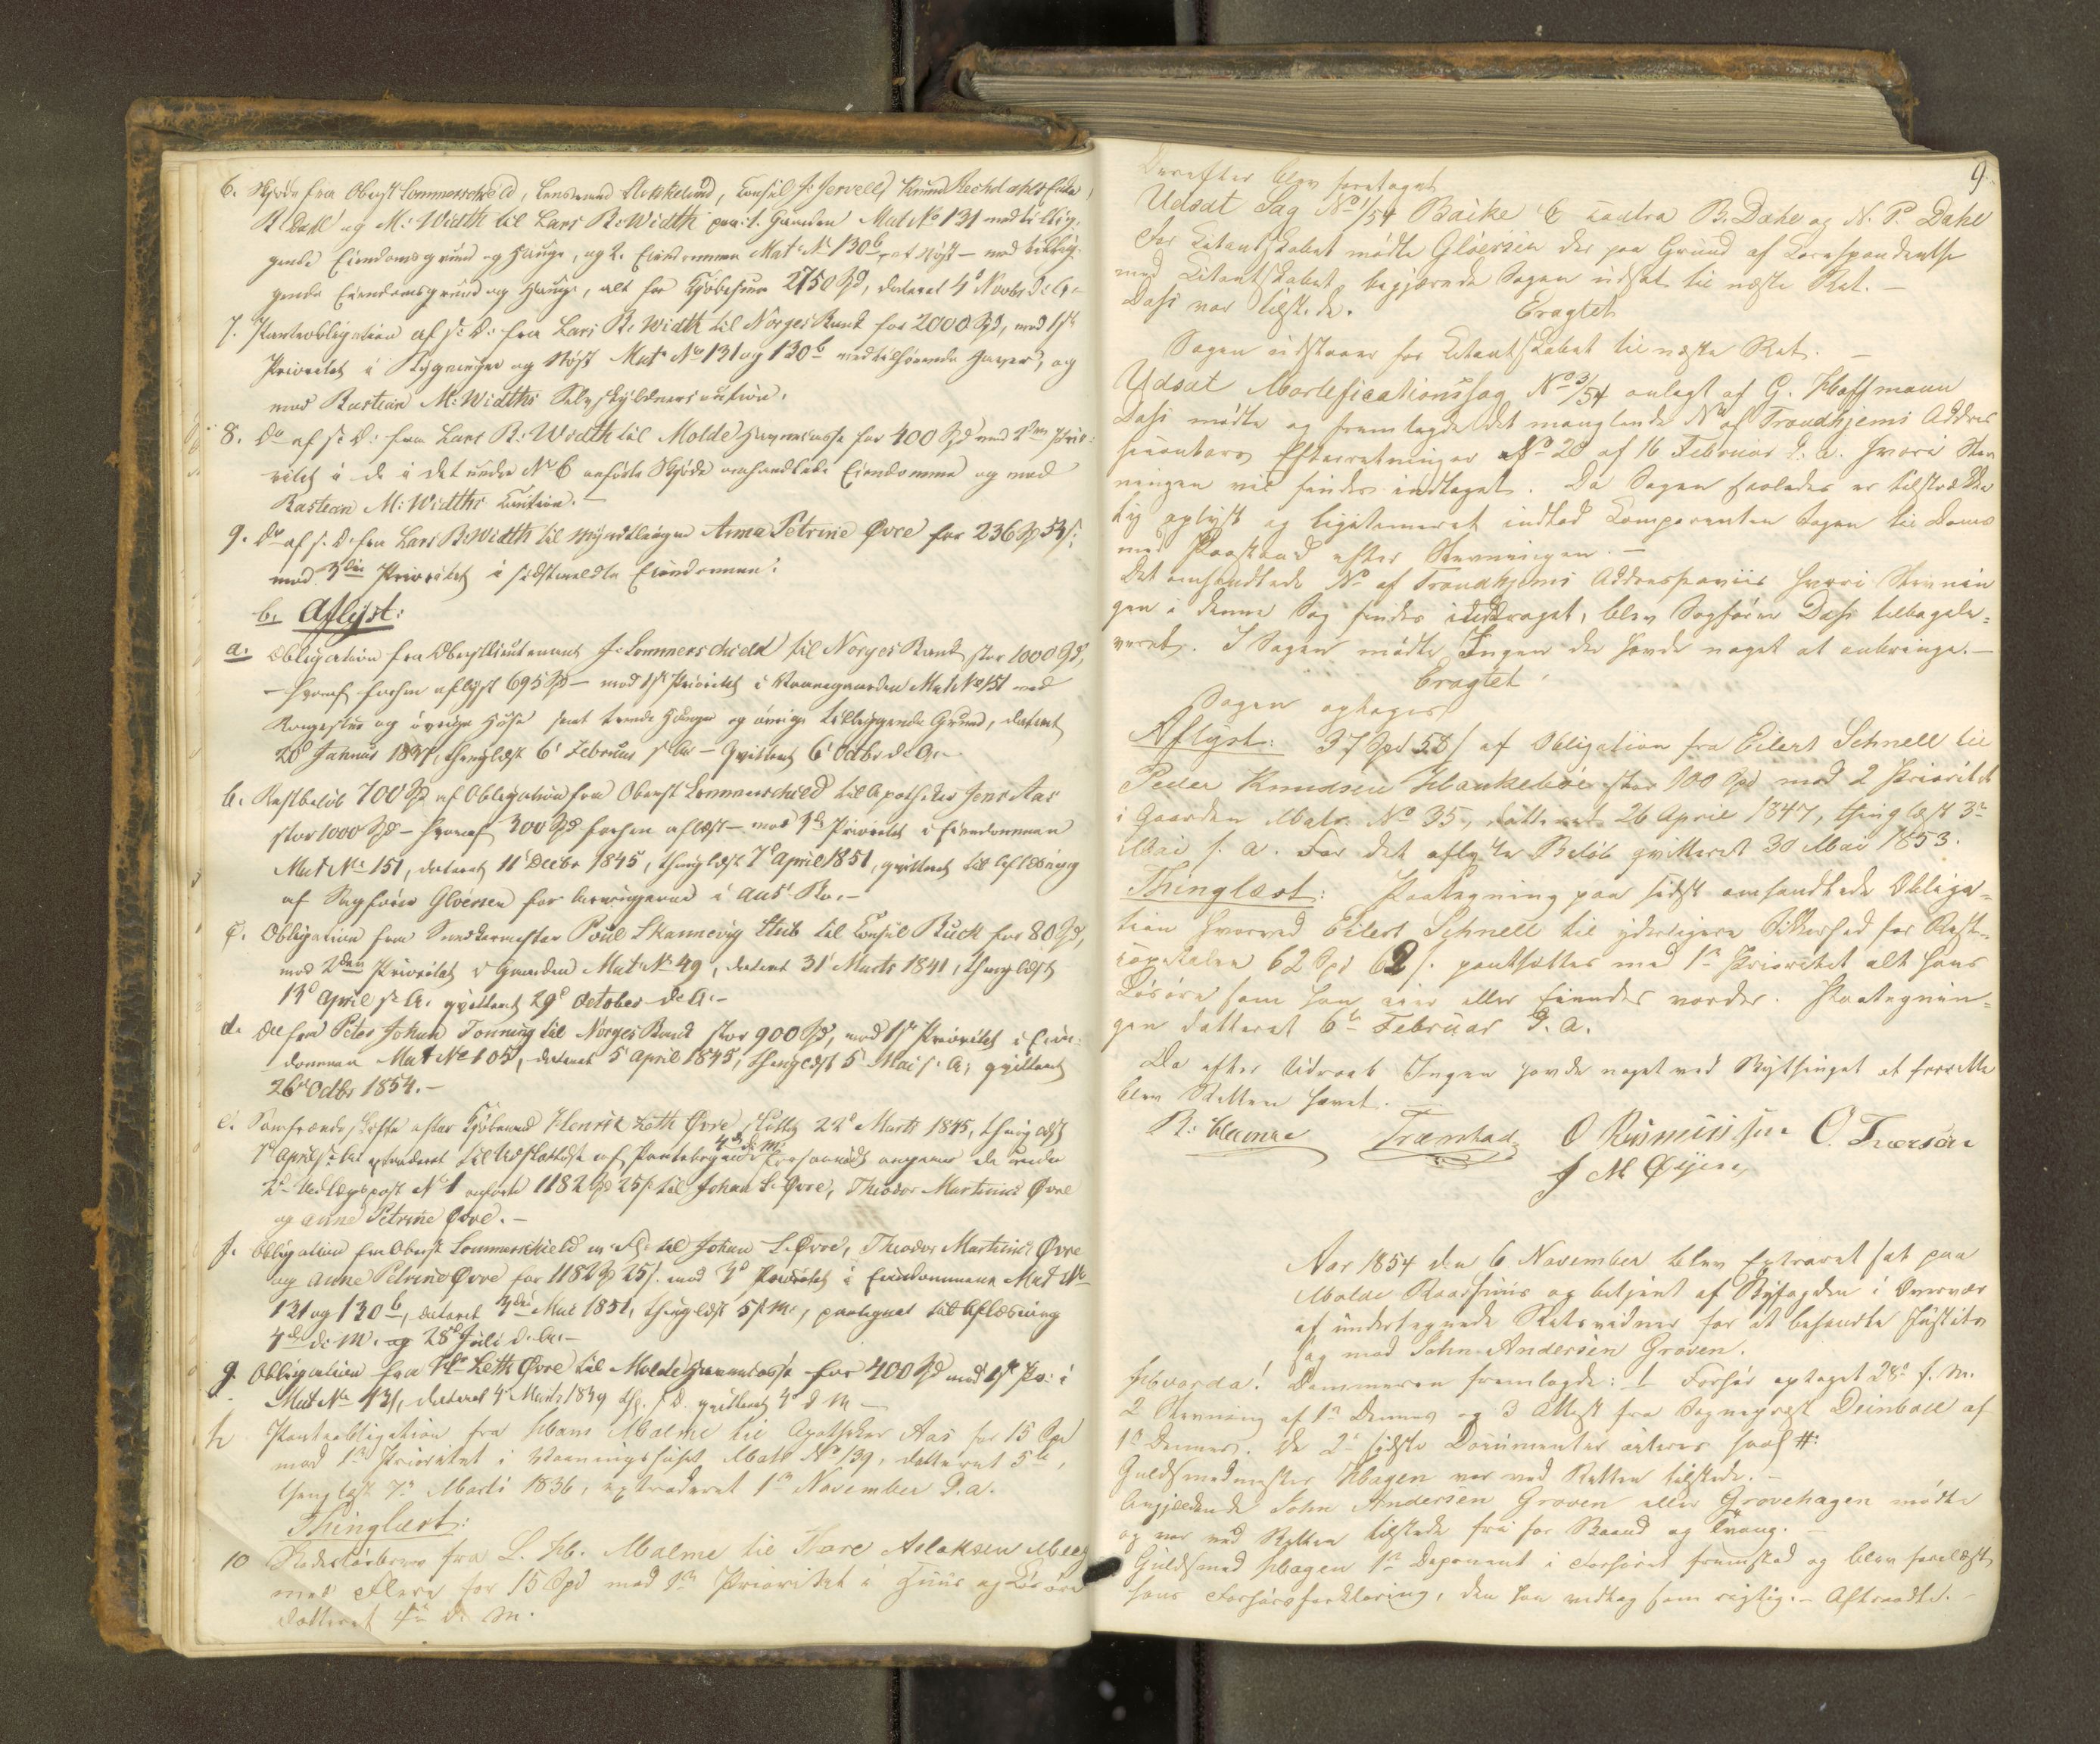 6. Skjøde fra Oberst Sommerschield, Lensmand Aukelund, Consul J. Jervell, Knud Rechdahl
R Dahl og M. Width til Lars R. Width paa 1. Gaarden Mat. No 131 med tillig-
gende Eiendomsgrund og Hauge, og 2. Eiendommen Mat. No 130b med tillig-
gende Eiendomsgrund og Hauge, alt for Kjøbesum 2750 Spd, dateret 4d Novbr d. A.
7. Panteobligation af s. D. fra Lars R. Width til Norges Bank for 2000 Spd, med 1ste
Prioritet i Bygninger og Mat. No 131 og 130b med tilhørende Haver, og
med Bastian M. Widths Selvskyldnercaution.
8. Do af s. D. fra Lars R. Width til Molde Havnecasse for 400 Spd med 2den Prio-
ritet i de i det under No 6 anførte Skjøde omhandlede Eiendomme og med
Bastian M. Widths Caution.
9. Do af s. D. fra Lars R. Width til Myndtlinge Anna Petrine Øvre for 236 Spd 54 s.
med 3die Prioritet i sidstmeldte Eiendomme.
b. Aflyst:
a. Obligation fra Oberstlieutenant J. Sommerschield til Norges Bank stor 1000 Spd,
– hvoraf forhen aflyst 695 Spd – med 1ste Prioritet i Vaaregaarden Mat. No 151 med
og øvrige Huse samt tvende Hauger og øvrige tilliggende Grund, dateret
20d Januar 1837, thinglæst 6d Februar s. A. – Qvitteret 6d Octbr d. A. –
b. Restbeløb 700 Spd af Obligation fra Oberst Sommerschield til Apotheker Jens Aas
stor 1000 Spd – hvoraf 300 Spd forhen aflæst – med Prioritet i Eiendommen
Mat No 151, dateret 11d Decbr 1845, thinglæst 7d April 1851, qvitteret til Aflæsning
af Sagfører Gløersen for
c. Obligation fra Snedkermester Poul Skannevig Stub til Consul Buck for 80 Spd,
med 2den Prioritet i Gaarden Mat. No 49, dateret 31d Marts 1841, thinglæst
13d April s. A. qvitteret 29d October d. A. –
d. Do fra Peter Johan Tonning til Norges Bank stor 900 Spd, med 1ste Prioritet i Eien-
dommen Mat No 105, dateret 5 April 1845, thinglæst 5 Mai s. A, qvitteret
26de Octbr 1854. –
e. Samfrænde Skifte efter Kjøbmand Henrik Leth Øvre sluttet 22d Marts 1845, thinglæst
7d April s. A. extraderet til Udslettelse af Pantebogen 4de d. M. forsaavidt angaaer de under
Udlægspost No 1 anførte 1182 Spd 25 s. til Johan L. Øvre, Theodor Martinus Øvre
og Anne Petrine Øvre. –
f. Obligation fra Oberst Sommerschield m. Fl. til Johan L. Øvre, Theodor Martinus Øvre
og Anne Petrine Øvre for 1182 Spd 25 s. med Prioritet i Eiendommene Mat No
131 og 130b, dateret 3die Mai 1851, thinglæst 5 s. M., paategnet til Aflæsning
4de d. M. og 28d Juli d. A. –
g. Obligation fra Leth Øvre til Molde Havnecasse for 400 Spd med 1ste Pr. i
Mat No 131, dateret 4 Marts 1839 thgl. s. D. qvitteret 4d d M –
h Panteobligation fra Hans Malme til Apotheker Aas for 15 Spd
med 1ste Prioritet i Vaaningshuset Matr No 139, datteret 5te,
thinglæst 7de Marts 1836, extraderet 1ste November d. a.
Thinglæst:
10 fra L. H. Malme til Tore Aslaksen
med Flere for 15 Spd med 1ste Prioritet i Huus og Løsøre
datteret 4de d. M.
9.
Derefter blev foretaget
Udsat Sag No 1/54 Backe & contra B. Dahl og N. P. Dahl
For Citantskabet mødte Gløersen der paa Grund af Correspondentse
med Citantskabet begjærede Sagen udsat til næste Ret. –
Dass var tilstede. Eragtet
Sagen udstaaer for Citantskabet til næste Ret. –
Udsat Mortificationssag No 3/54 anlagt af G. Hoffmann
Dass mødte og fremlagde det manglende No af Trondhjems Addres
seContors Efterretninger No 20 af 16 Februar d. a. hvori Stev
ningen vil findes indtaget. Da Sagen saaledes er tilstrække
lig oplyst og legitimeret indlod Comparenten Sagen til Doms
med Paastand efter Stevningen. –
Det omhandlede No af Trondhjems Addresseavis hvori Stevnin
gen i denne Sag findes inddraget, blev Sagfører Dass tilbagele-
veret. I Sagen mødte Ingen der havde noget at anbringe. –
Eragtet
Sagen optages
Aflyst: 37 Spd 58 s af Obligation fra Eilert Schnell til
Peder Knudsen Haukebøe stor 100 Spd med 2 Prioritet
i Gaarden Matr. No 35, datteret 26 April 1847, thinglæst 3de
Mai s. a. For det aflyste Beløb qvitteret 30 Mai 1853.
Thinglæst: Paategning paa sidst omhandlede Obliga-
tion hvorved Eilert Schnell til yderligere Sikkerhed for Rest-
capitalen 62 Spd 62 s. pantsætter med 1ste Prioritet alt hans
Løsøre som han eier eller eiendes vorder. Paategnin-
gen datteret 6te Februar d. a.
Da efter Udraab Ingen havde noget ved Bythinget at forrette
blev Retten hævet. –
O Rasmussen O. Iversen
J M Øyen
Aar 1854 den 6 November blev Extraret sat paa
Molde Raadhuus og betjent af Byfogden i Overvær
af undertegnede Retsvidner for at behandle Justits
sag mod John Andersen Groven.
Hvorda! Dommeren fremlagde: 1 Forhør optaget 28de f. M.
2 Stevning af 1ste Dennes og 3 Attest fra Sognepræst Deinboll af
1ste Dennes. De 2de sidste Documenter acteres saal #:
Guldsmedmester Hagen var ved Retten tilstede. –
Angjeldende John Andersen Groven eller Grovehagen mødte
og var ved Retten tilstede fri for Baand og Tvang. –
Guldsmed Hagen 1ste Deponent i Forhøret fremstod og blev forelæst
hans Forhørsforklaring, den han vedtog som rigtig. – Aftraadte. –